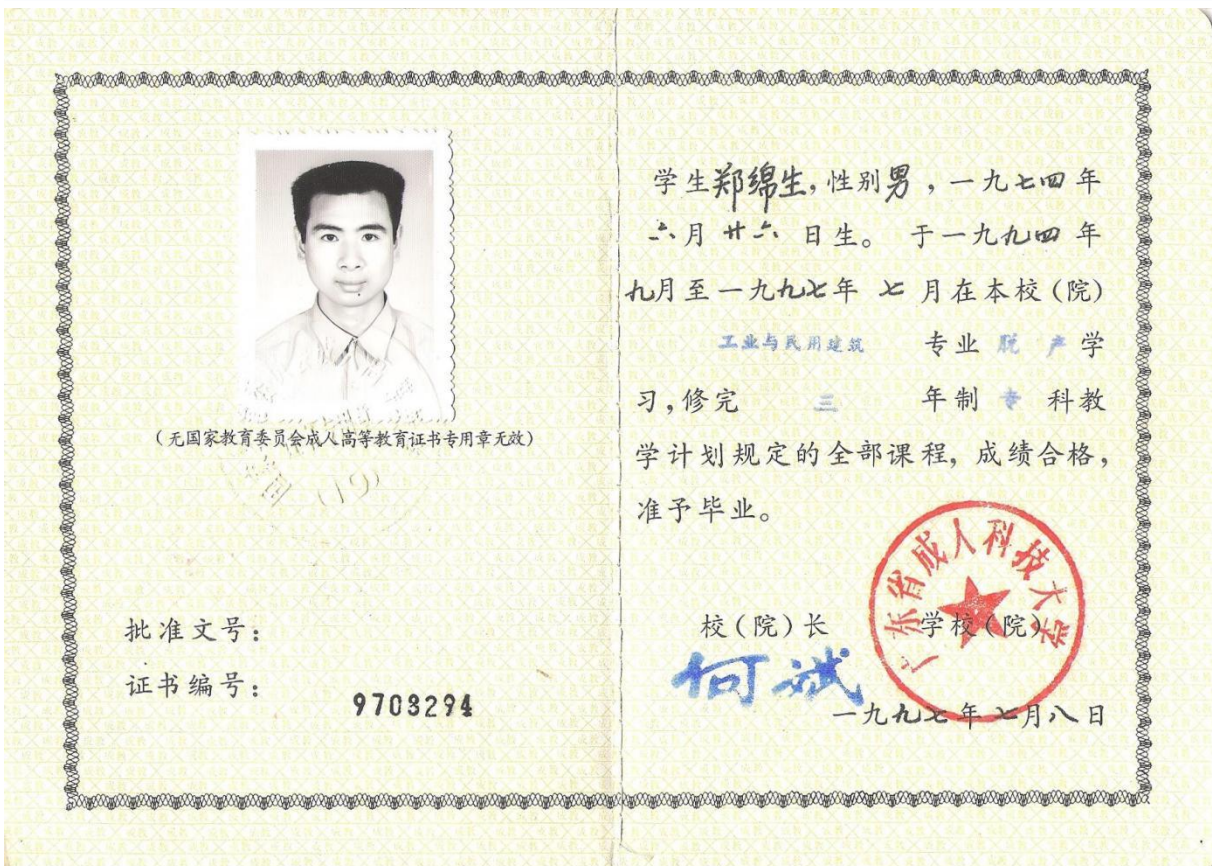 (无国家教育委员会成人高等教育证书专用章无效)
(19)
批准文号：
证书编号：
9703294
学生郑绵生，性别男，一九七四年
六月廿六日生。于一九九四年
九月至一九九七年七月在本校(院)
工业与民用建筑 专业脱产学
习，修完 三 年制专科教
学计划规定的全部课程，成绩合格，
准予毕业。
校(院)长 学校(院)
何斌
广东省成人科技大学
一九九七年七月八日